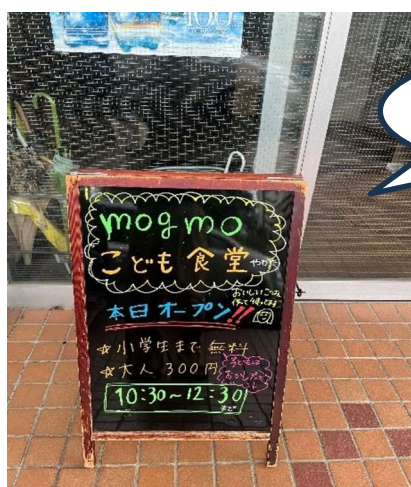 100
mogmo
こども食堂 やかた
おいしいごはん
作って待ってます
本日オープン!!
☆小学生まで 無料
☆大人 300円
10:30~12:30
まで